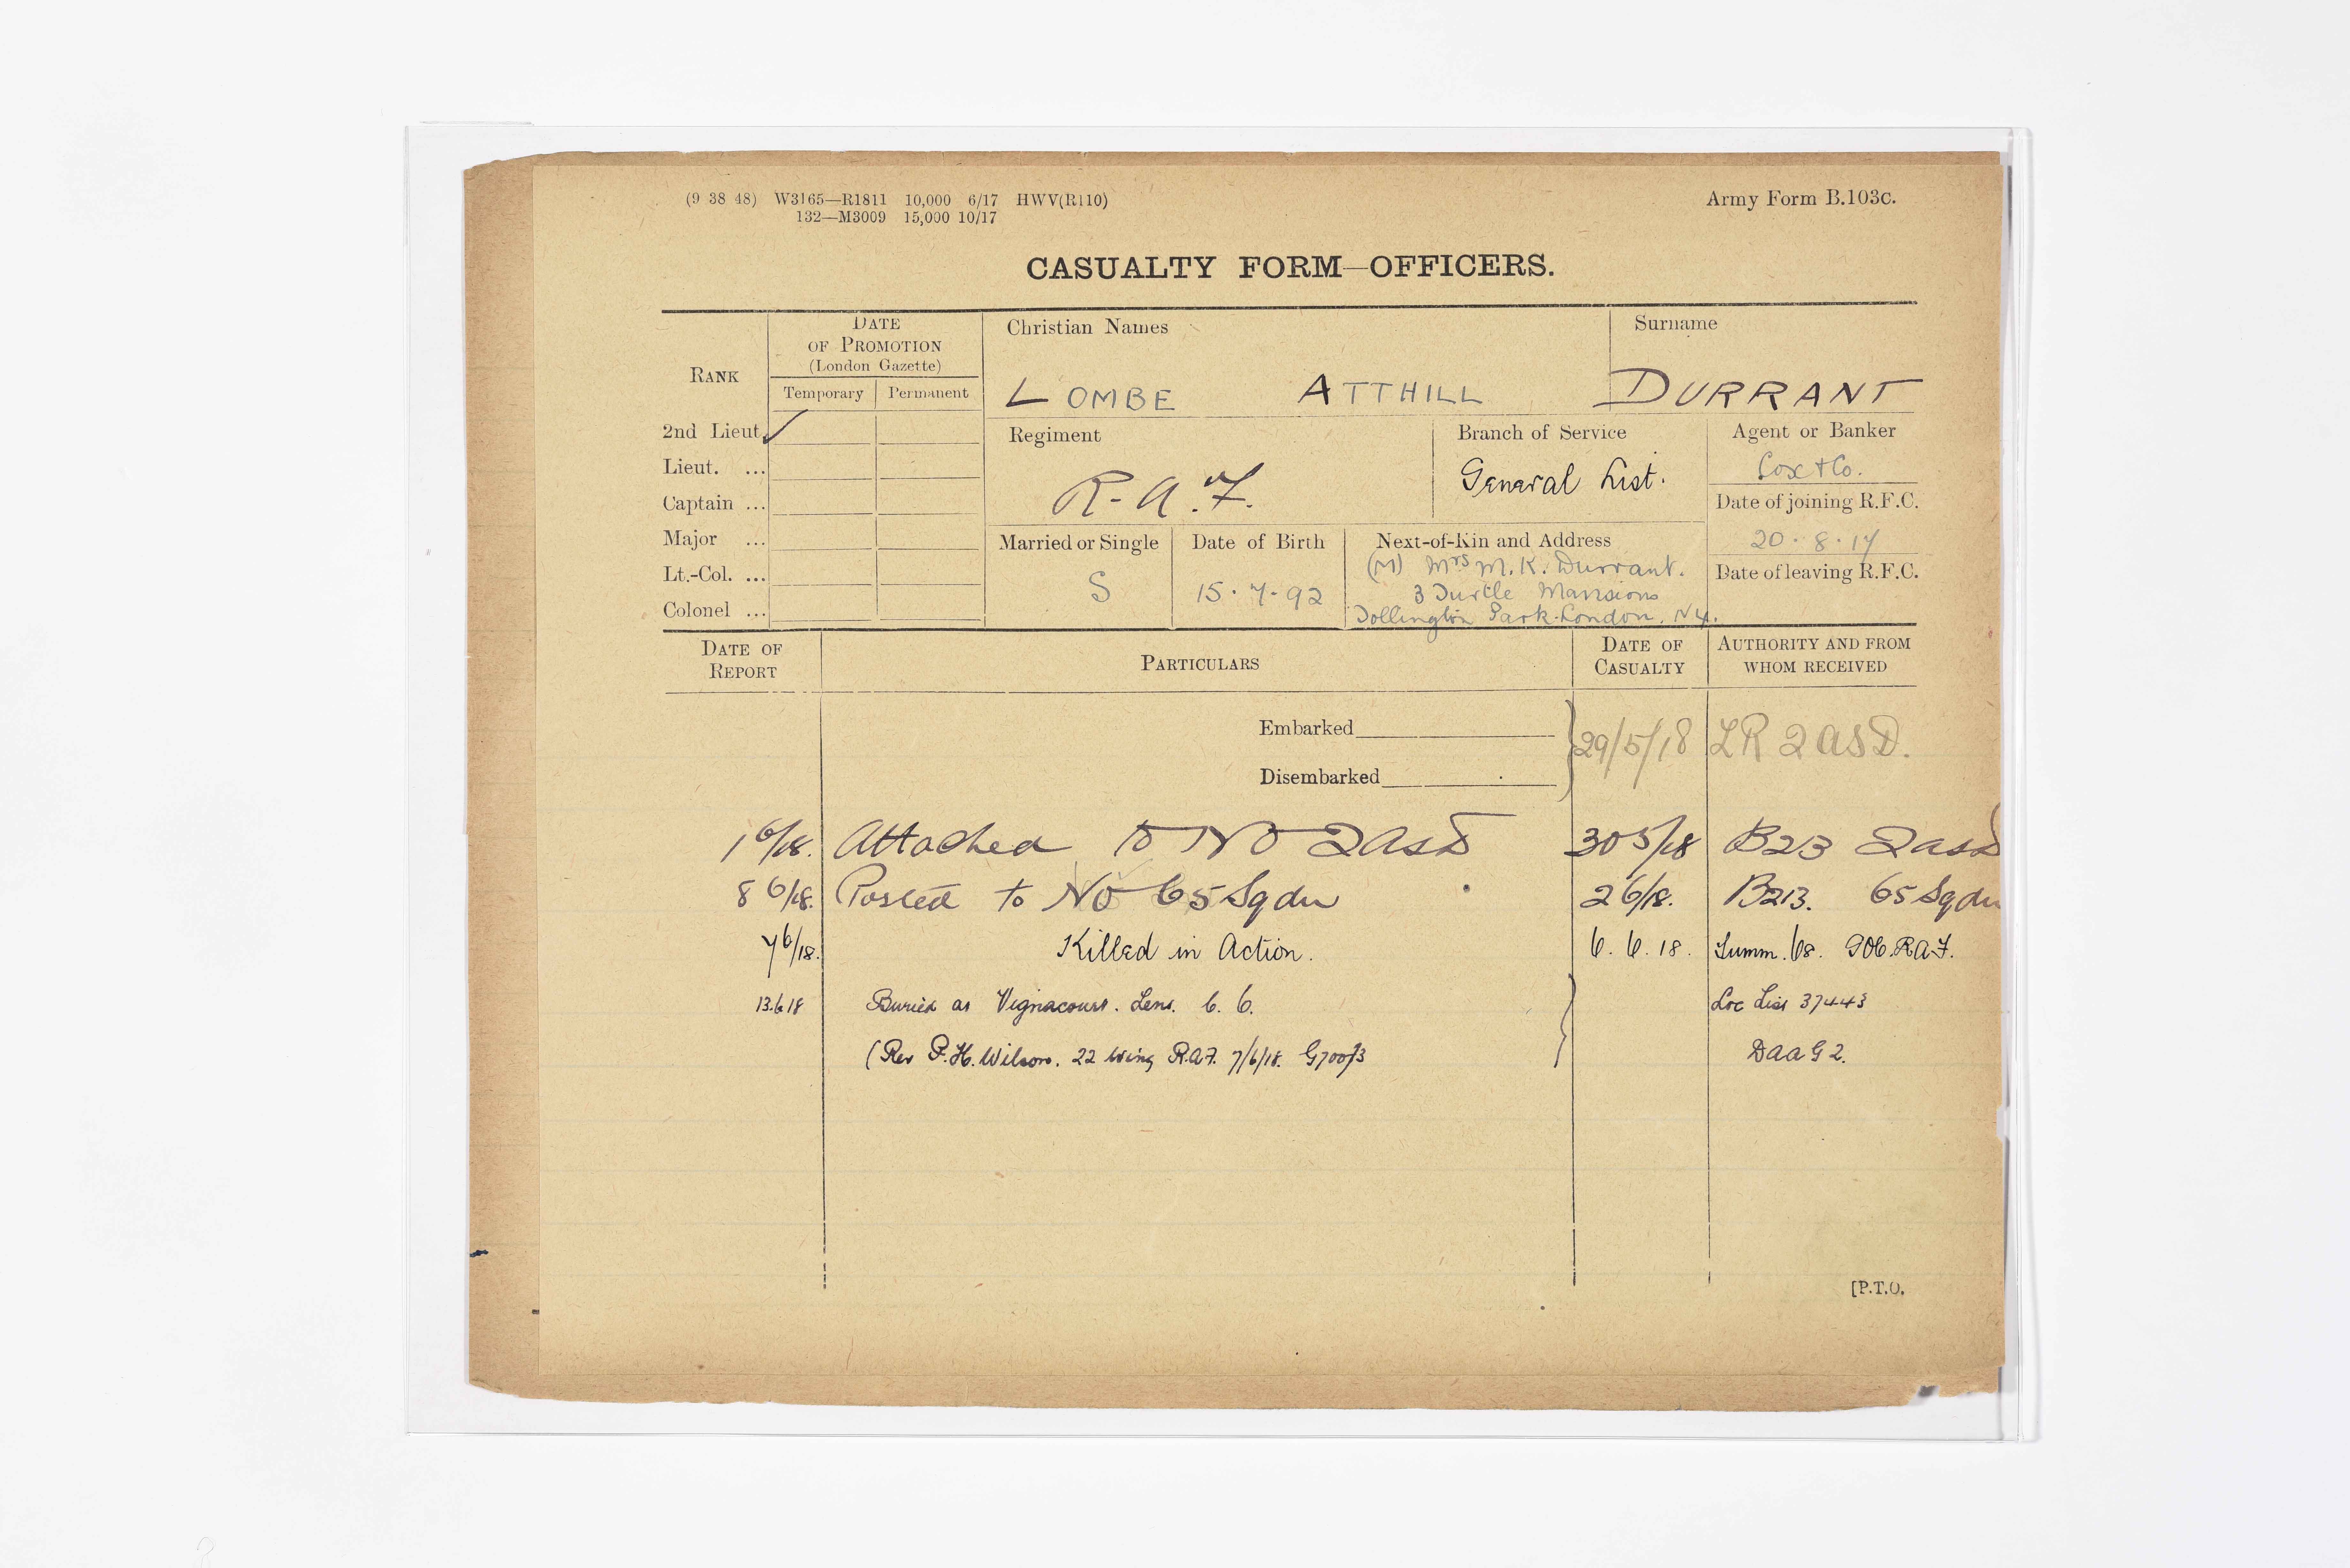 (9 38 48) W3165—R1811 10,000 6/17 HWV(R110)
132—M3009 15,000 10/17
Army Form B.103c.
CASUALTY FORM—OFFICERS.
RANK
DATE
OF PROMOTION
(London Gazette)
Temporary Permanent
Christian Names
LOMBE ATTHILL
Surname
DURRANT
2nd Lieut. ✓
Lieut. ...
Captain ...
Major ...
Lt.-Col. ...
Colonel ...
Regiment
R.A.F.
Branch of Service
General List.
Agent or Banker
Cox & Co.
Date of joining R.F.C.
20.8.17
Date of leaving R.F.C.
Married or Single
S
Date of Birth
15.7.92
Next-of-Kin and Address
(M) Mrs M.K. Durrant.
3 Mansions
Tollington Park. London. N4.
DATE OF
REPORT
PARTICULARS
DATE OF
CASUALTY
AUTHORITY AND FROM
WHOM RECEIVED
Embarked
29/5/18 LR 2 ASD.
Disembarked
1 6/18. Attached to No 2 ASD 30 5/18 B213 2 ASD
8 6/18. Posted to No 65 Sqdn 2 6/18. B213. 65 Sqdn
7 6/18. Killed in Action. 6.6.18. Summ. 68. GOC. RAF.
13.6.18 Buried at Vignacourt. . C. C. Loc List 37443
(Rev P.H. Wilson. 22 Wing R.A.F. 7/6/18. DAAG 2.
[P.T.O.